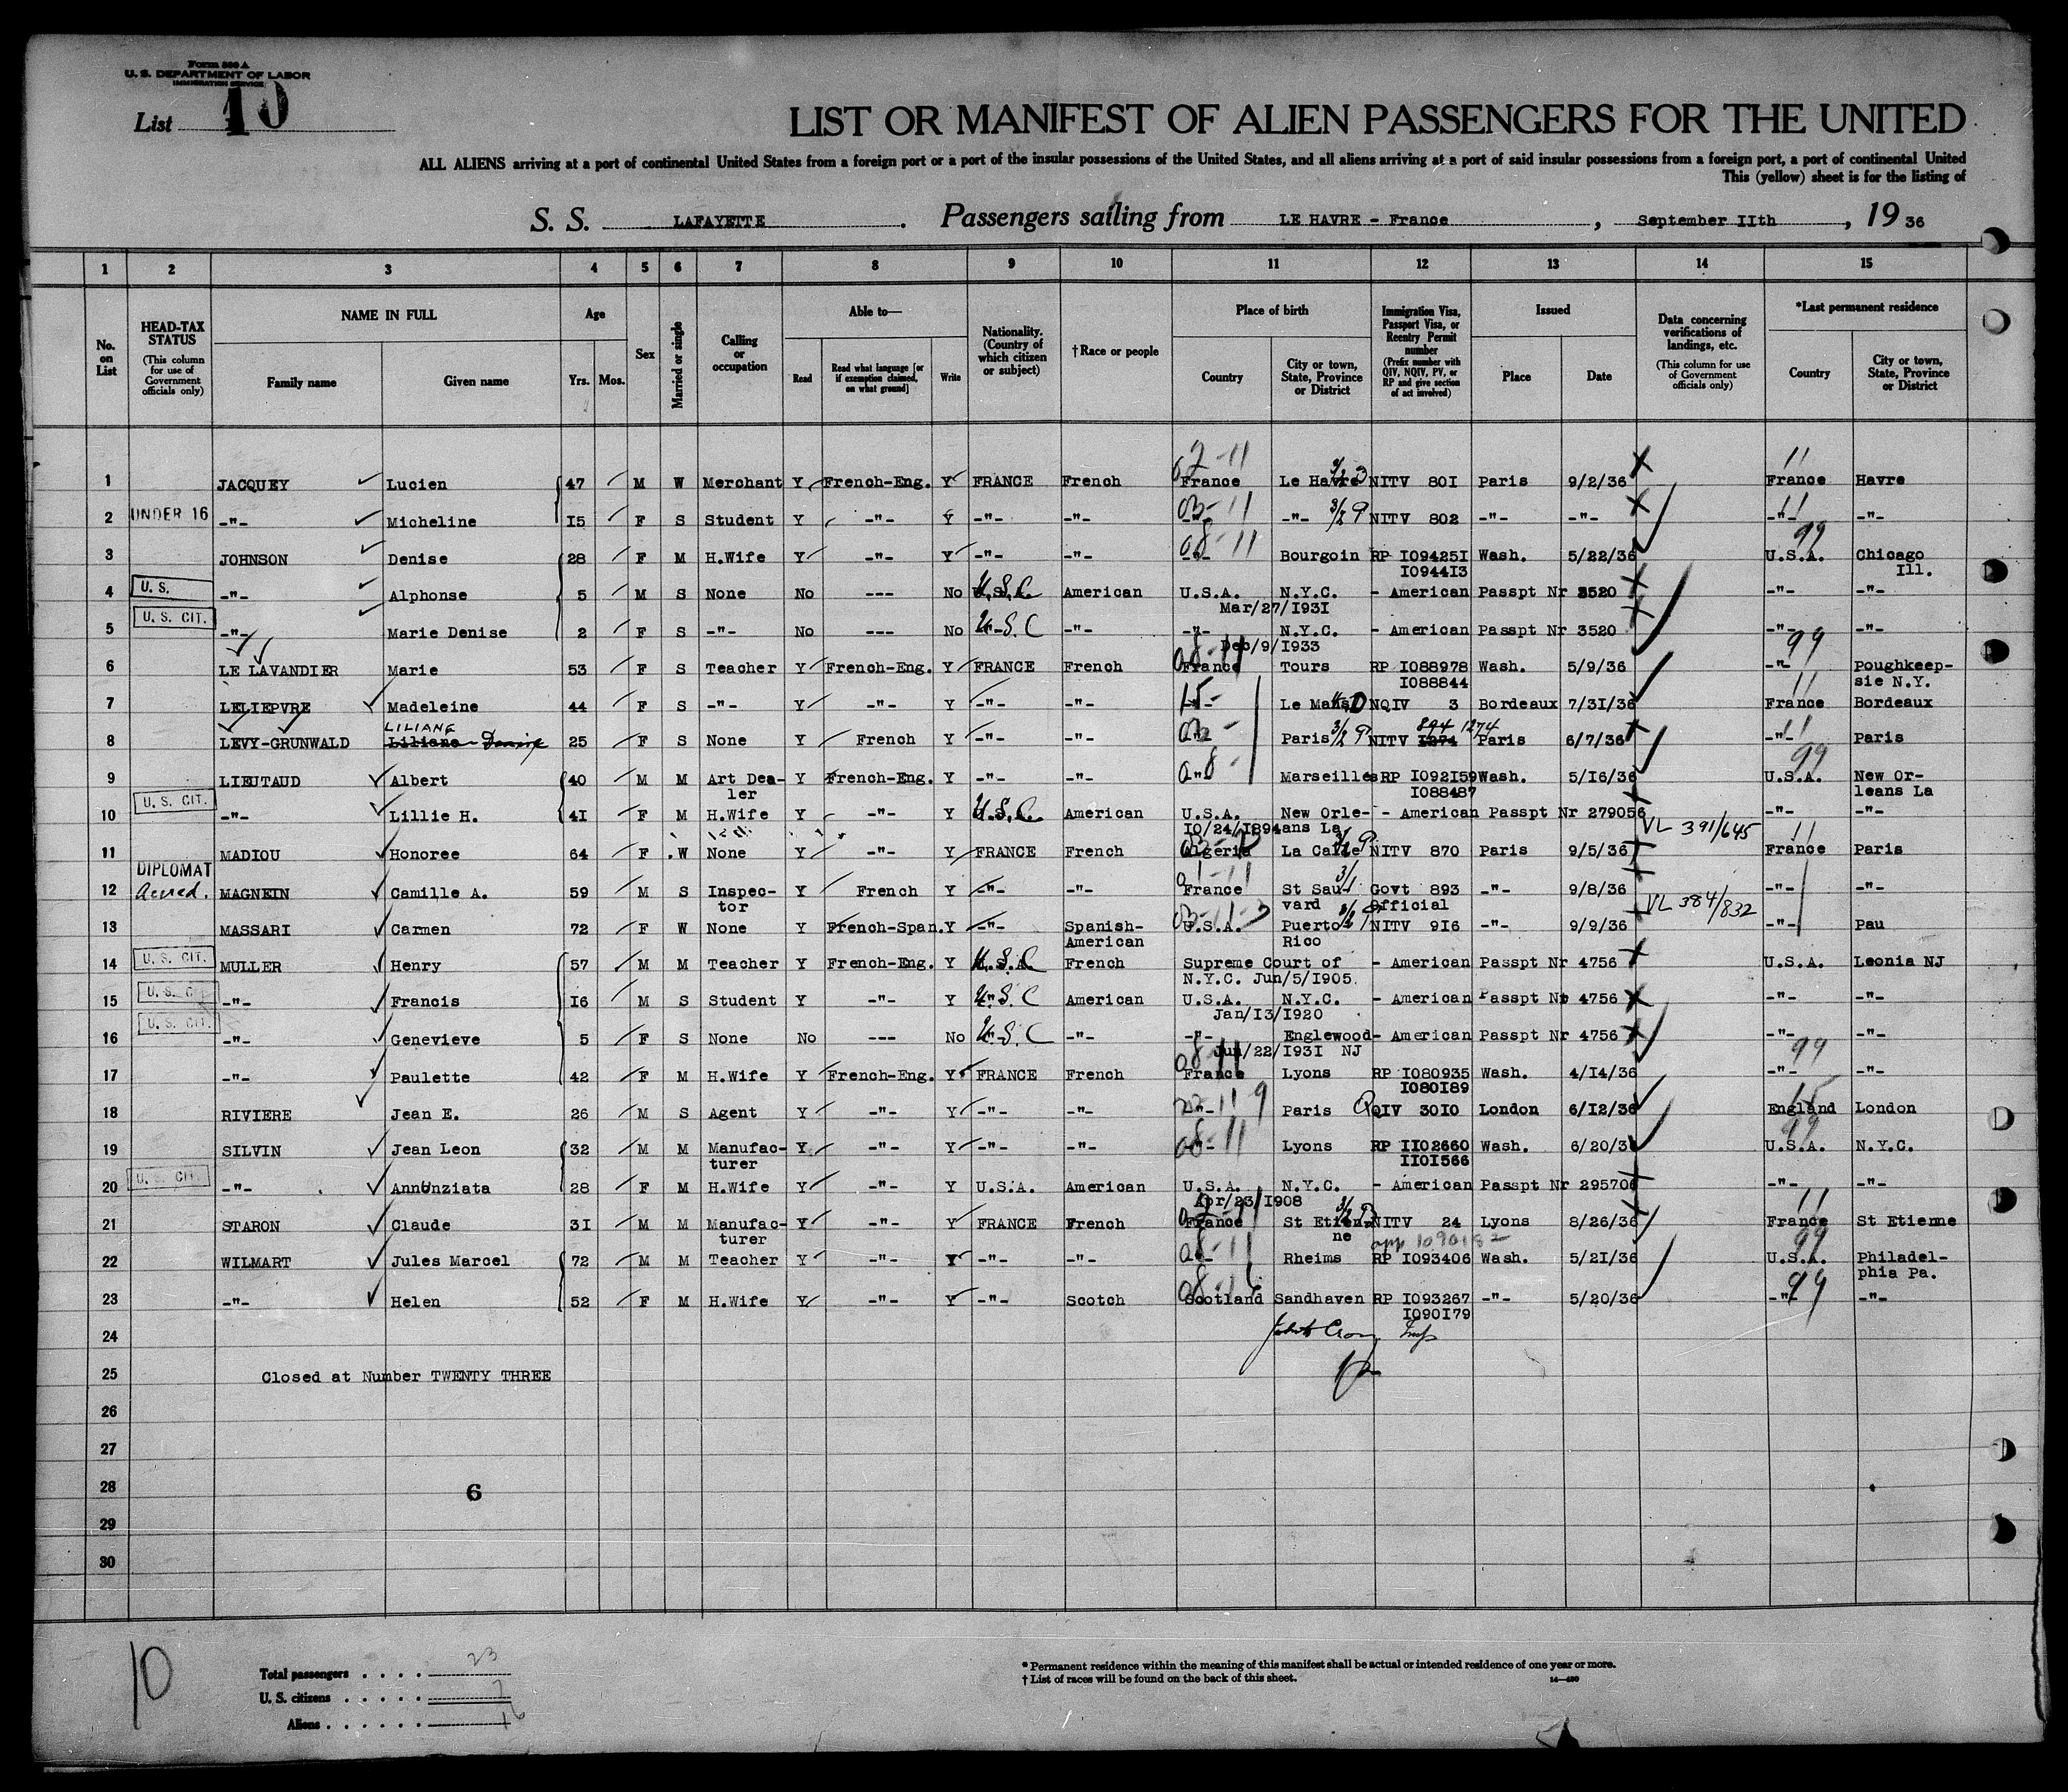 Form 500 A
U. S. DEPARTMENT OF LABOR
IMMIGRATION SERVICE
List 10
LIST OR MANIFEST OF ALIEN PASSENGERS FOR THE UNITED
ALL ALIENS arriving at a port of continental United States from a foreign port or a port of the insular possessions of the United States, and all aliens arriving at a port of said insular possessions from a foreign port, a port of continental United
This (yellow) sheet is for the listing of
S. S. LAFAYETTE. Passengers sailing from LE HAVRE - France, September IIth, 19 36
1 2 3 4 5 6 7 8 9 10 11 12 13 14 15
No. on List
HEAD-TAX STATUS (This column for use of Government officials only)
NAME IN FULL Family name Given name
Age Yrs. Mos.
Sex
Married or single
Calling or occupation
Able to— Read Read what language [or if exemption claimed, on what ground] Write
Nationality. (Country of which citizen or subject)
†Race or people
Place of birth Country City or town, State, Province or District
Immigration Visa, Passport Visa, or Reentry Permit number (Prefix number with QIV, NQIV, PV, or RP and give section of act involved)
Issued Place Date
Data concerning verifications of landings, etc. (This column for use of Government officials only)
*Last permanent residence Country City or town, State, Province or District
02-11 11
1 JACQUEY Lucien 47 M W Merchant Y French-Eng. Y FRANCE French France Le Havre NITV 80I Paris 9/2/36 France Havre
03-11 11
2 UNDER 16 -"- Micheline I5 F S Student Y -"- Y -"- -"- -"- -"- 3/2 P NITV 802 -"- -"- -"- -"-
08-11 99
3 JOHNSON Denise 28 F M H.Wife Y -"- Y -"- -"- -"- Bourgoin RP I09425I Wash. 5/22/36 U.S.A. Chicago
I0944I3 Ill.
4 U. S. -"- Alphonse 5 M S None No --- No U.S.C. American U.S.A. N.Y.C. - American Passpt Nr 3520 -"- -"-
Mar/27/I93I
5 U. S. CIT. -"- Marie Denise 2 F S -"- No --- No U.S.C -"- -"- N.Y.C. - American Passpt Nr 3520 -"- -"-
Dec/9/I933 99
6 LE LAVANDIER Marie 53 F S Teacher Y French-Eng. Y FRANCE French France Tours RP I088978 Wash. 5/9/36 -"- Poughkeep-
I088844 sie N.Y.
15- 11
7 LELIEPVRE Madeleine 44 F S -"- Y -"- Y -"- -"- Le Mans NQIV 3 Bordeaux 7/3I/36 France Bordeaux
LILIANE 894 1274 11
8 LEVY-GRUNWALD Liliane - Denise 25 F S None Y French Y -"- -"- Paris 3/2 P NITV I274 Paris 6/7/36 -"- Paris
08- 99
9 LIEUTAUD Albert 40 M M Art Dea- Y French-Eng. Y -"- -"- -"- Marseilles RP I092I59 Wash. 5/I6/36 U.S.A. New Or-
ler I088487 leans La
10 U. S. CIT. -"- Lillie H. 4I F M H.Wife Y -"- Y U.S.C. American U.S.A. New Orle- - American Passpt Nr 279056 -"- -"-
I0/24/I894 ans La VL 391/645
11 MADIOU Honoree 64 F W None Y -"- Y FRANCE French Algeria La Calle NITV 870 Paris 9/5/36 France Paris
DIPLOMAT 01-11 3/1
12 Accred. MAGNEIN Camille A. 59 M S Inspec- Y French Y -"- -"- France St Sau- Govt 893 -"- 9/8/36 -"- -"-
tor vard Official VL 384/832
13 MASSARI Carmen 72 F W None Y French-Span. Y -"- Spanish- U.S.A. Puerto NITV 9I6 -"- 9/9/36 -"- Pau
American Rico
14 U. S. CIT. MULLER Henry 57 M M Teacher Y French-Eng. Y U.S.A. French Supreme Court of - American Passpt Nr 4756 U.S.A. Leonia NJ
N.Y.C. Jun/5/I905
15 U. S. CIT. -"- Francis I6 M S Student Y -"- Y U.S.C American U.S.A. N.Y.C. - American Passpt Nr 4756 -"- -"-
Jan/I3/I920
16 U. S. CIT. -"- Genevieve 5 F S None No --- No U.S.C -"- -"- Englewood - American Passpt Nr 4756 -"- -"-
Jun/22/I93I NJ 99
17 -"- Paulette 42 F M H.Wife Y French-Eng. Y FRANCE French France Lyons RP I080935 Wash. 4/I4/36 -"- -"-
I080I89
18 RIVIERE Jean E. 26 M S Agent Y -"- Y -"- -"- -"- Paris QIV 30I0 London 6/I2/36 England London
08-11 99
19 SILVIN Jean Leon 32 M M Manufac- Y -"- Y -"- -"- -"- Lyons RP II02660 Wash. 6/20/36 U.S.A. N.Y.C.
turer II0I566
20 U. S. CIT. -"- Annunziata 28 F M H.Wife Y -"- Y U.S.A. American U.S.A. N.Y.C. - American Passpt Nr 295706 -"- -"-
Apr/23/I908 11
21 STARON Claude 3I M M Manufac- Y -"- Y FRANCE French France St Etien- NITV 24 Lyons 8/26/36 France St Etienne
turer ne
08-11 app 1090182 99
22 WILMART Jules Marcel 72 M M Teacher Y -"- Y -"- -"- -"- Rheims RP I093406 Wash. 5/2I/36 U.S.A. Philadel-
phia Pa.
08-16 99
23 -"- Helen 52 F M H.Wife Y -"- Y -"- Scotch Scotland Sandhaven RP I093267 -"- 5/20/36 -"- -"-
I090I79
24 Insp
25 Closed at Number TWENTY THREE
26
27
28 6
29
30
10
Total passengers . . . . 23
U. S. citizens . . . . . 7
Aliens . . . . . . 16
* Permanent residence within the meaning of this manifest shall be actual or intended residence of one year or more.
† List of races will be found on the back of this sheet. 14—480